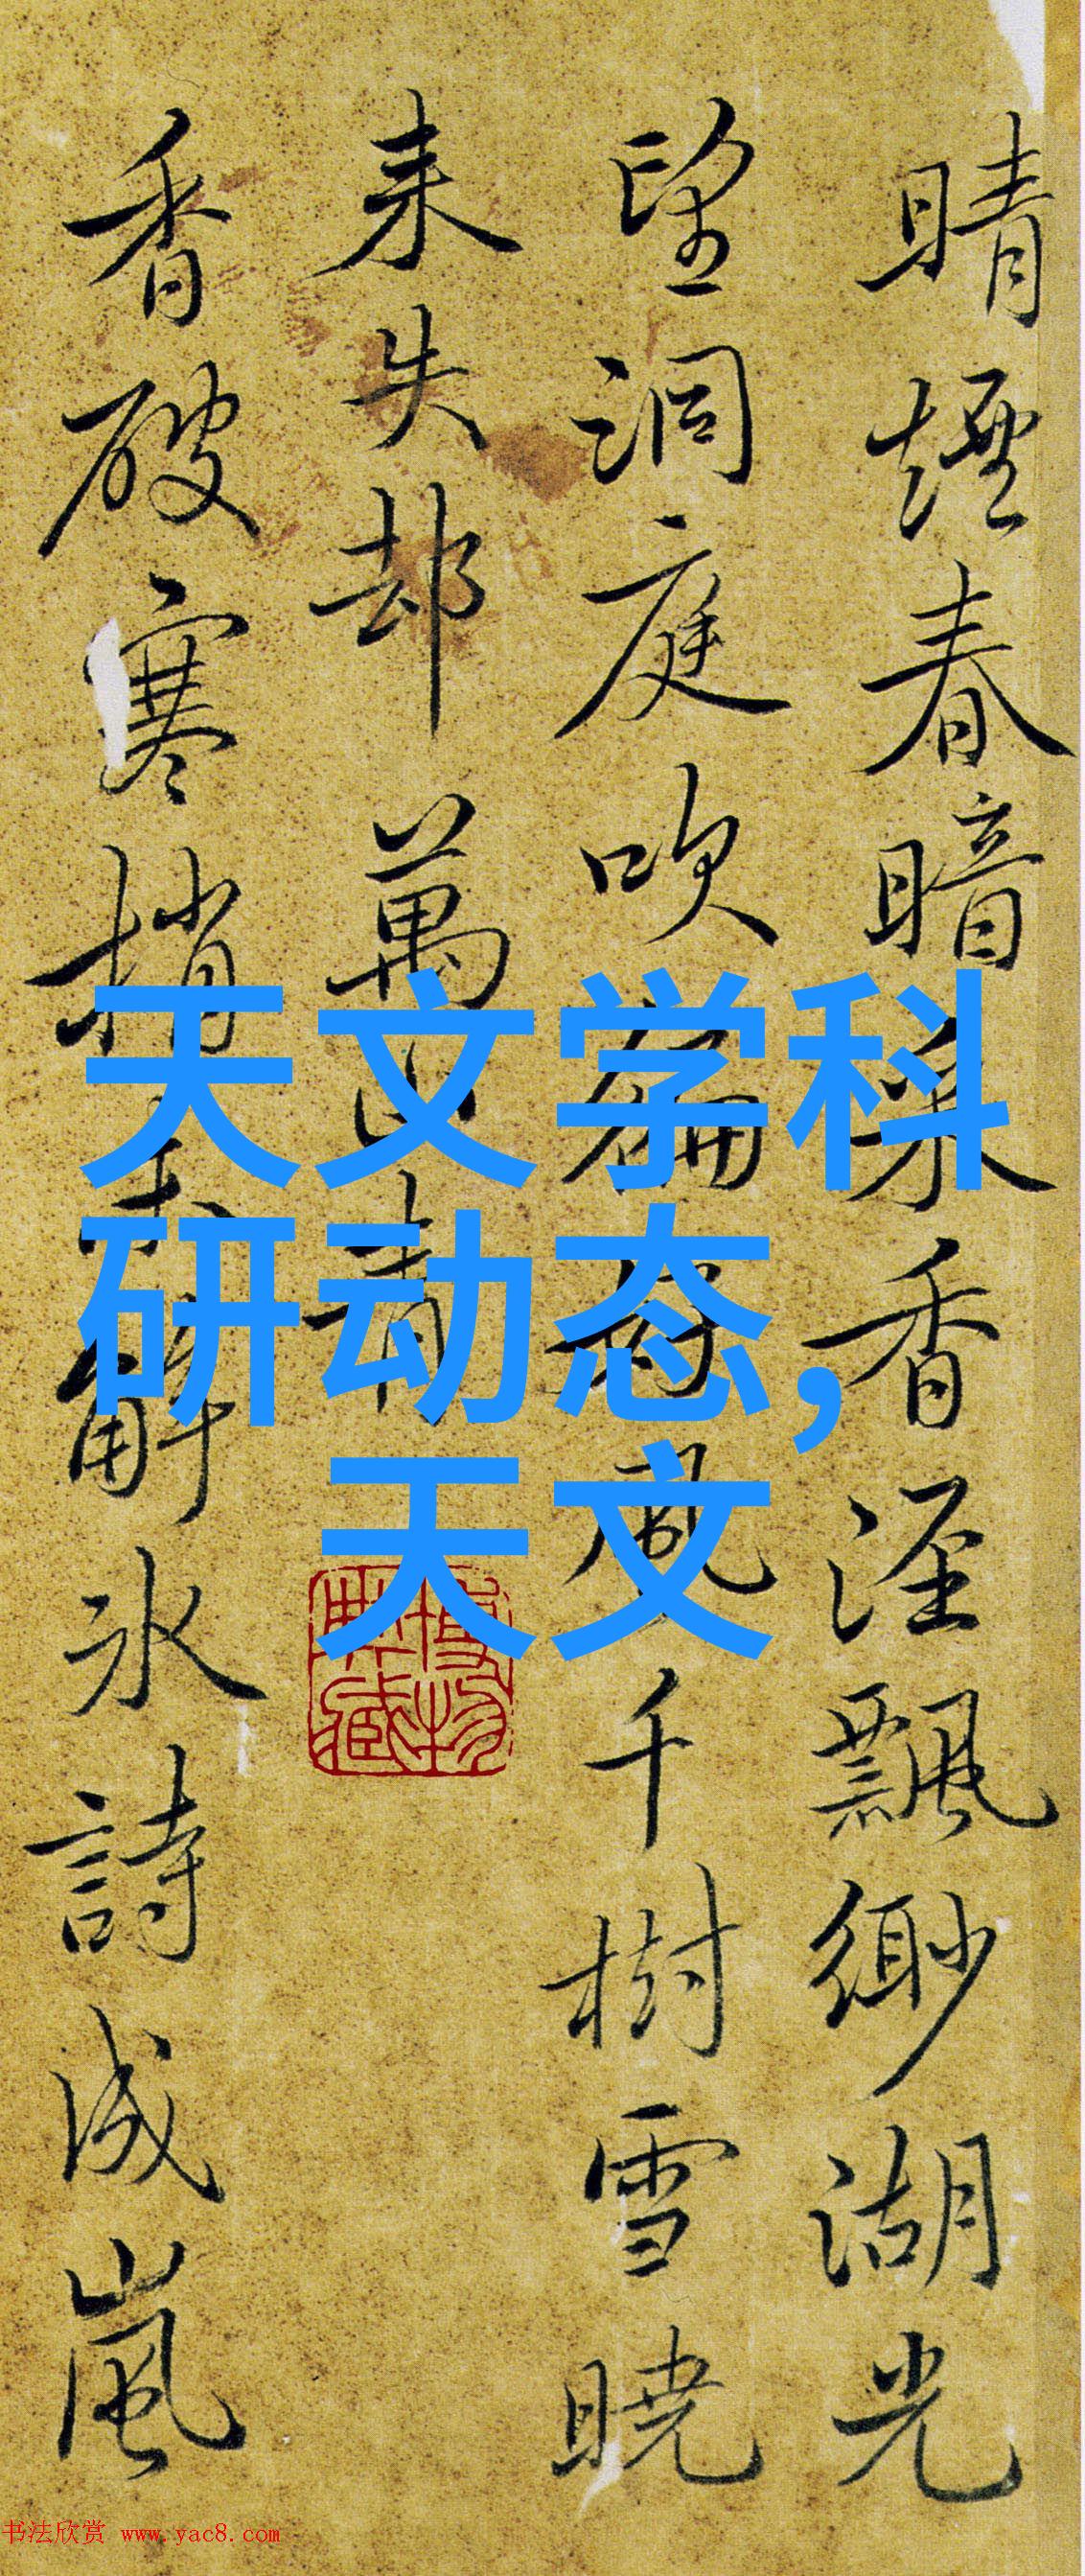 晴煙春暗菓香湮飄緲湖光
望洞庭吹徧好風千樹雪曉
来失却萬山青
香破寒梢解冰詩成嵐
天文学科
研动态,
天文
书法欣赏 www.yac8.com